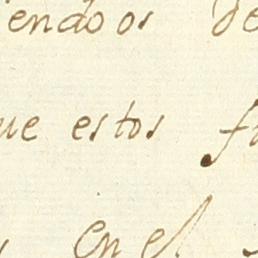 iendoos de
ue estos f
en el